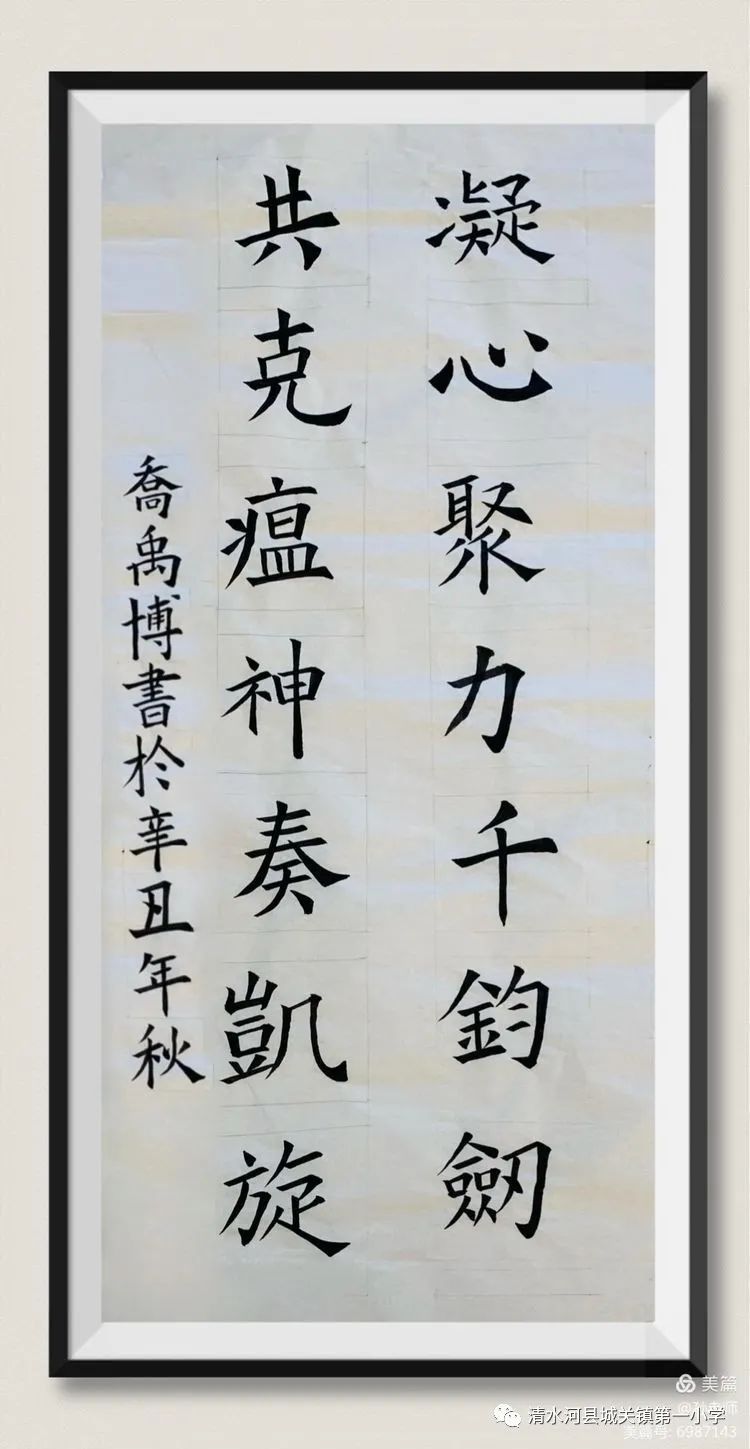 凝心聚力千鈞劒
共克瘟神奏凱旋
喬禹博書於辛丑年秋
美篇
清水河县城关镇第一小学
美篇号: 6987143